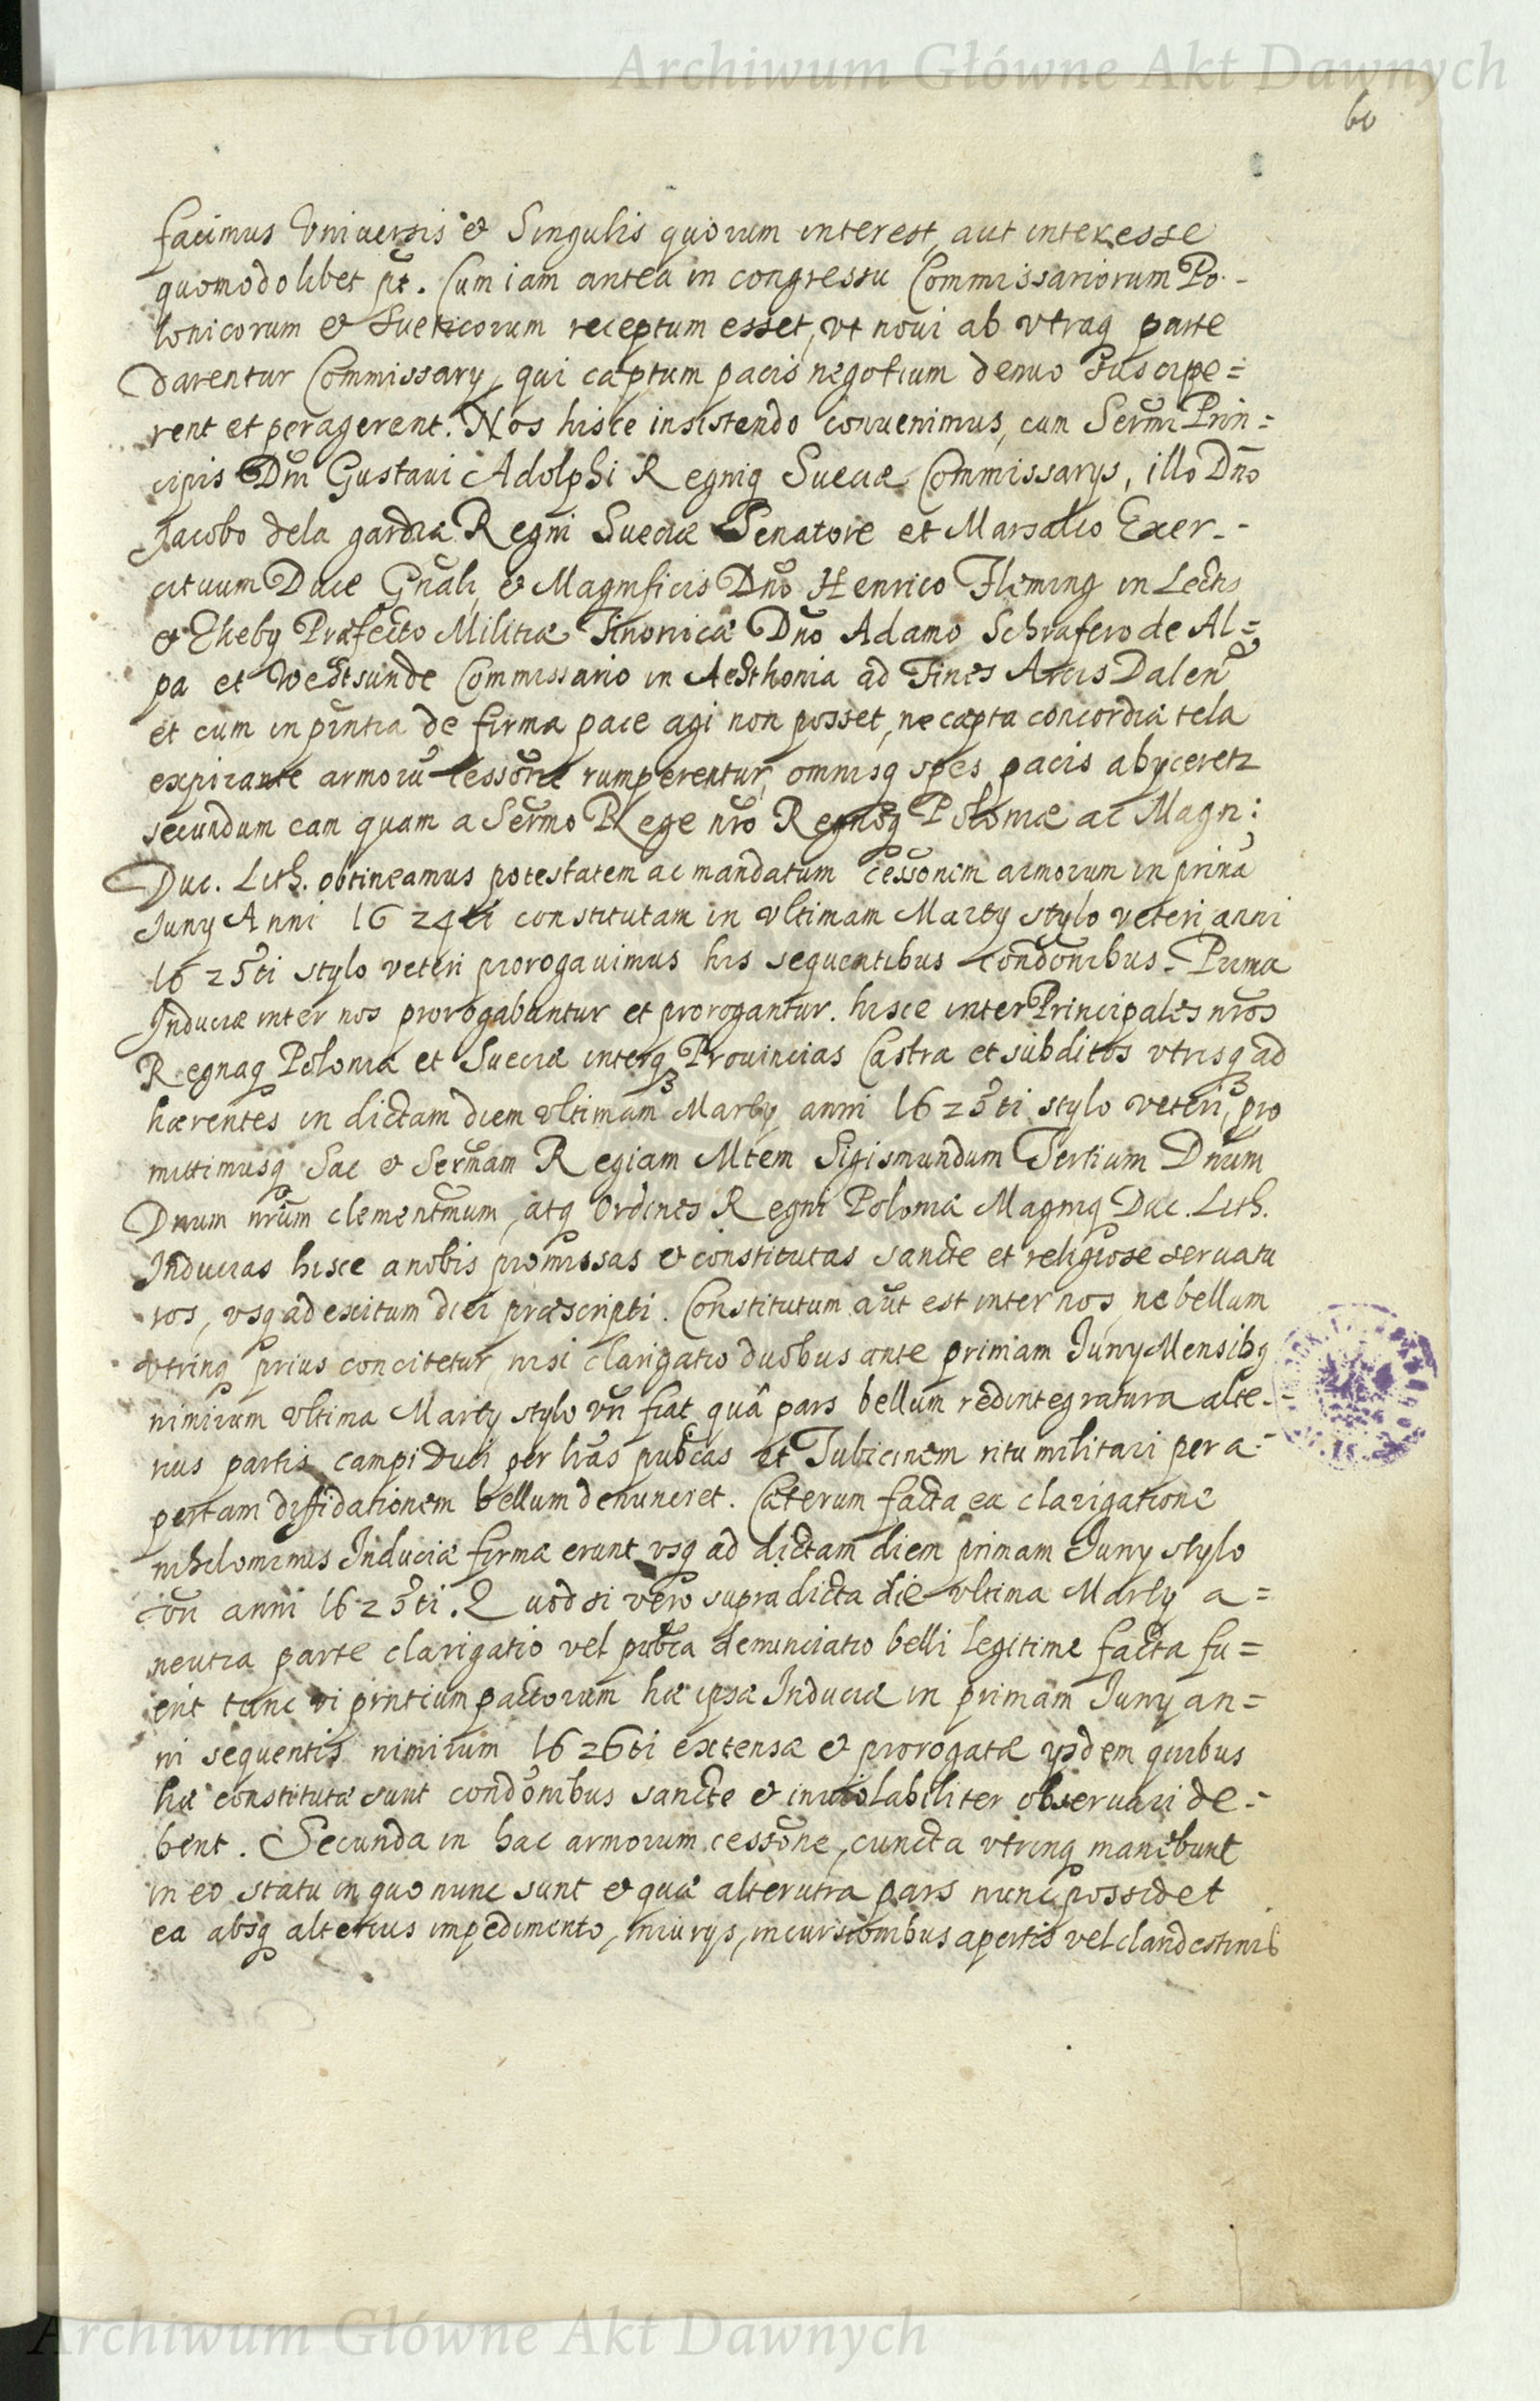 Archiwum Główne Akt Dawnych
60
facimus Vniuersis & Singulis quorum interest, aut interesse
quomodolibet pt. Cum iam antea in congressu Commissariorum Po-
lonicorum & Sueticorum receptum esset, vt noui ab vtraq parte
darentur Commissary, qui captum pacis negotium denuo suscipe=
rent et peragerent. Nos hisce insistendo conuenimus, cum Sermi Prin=
cipis Dni Gustaui Adolphi Regniq Sueciæ Commissarys, illo Dno
Jacobo dela gardia Regni Sueciæ Senatore et Marsalco Exer-
cituum Duce Gnali, & Magnificis Dno Henrico Fleming in Lechs
& Eheby Præfecto Militiæ Finonicæ Dno Adamo Schrafero de Al=
pa et Wedtsunde Commissario in Aesthonia ad Fines Arcis Dalen
et cum in pnntia de firma pace agi non posset, ne cæpta concordiæ tela
expirante armoru cessone rumperentur, omnisq spes pacis abyceretr
secundum eam quam a Sermo Rege nro Regnoq Poloniæ ac Magn:
Duc. Lith. obtineamus potestatem ac mandatum cessonem armorum in prima
Juny Anni 1624ti constitutam in vltimam Marty stylo veteri anni
1625ti stylo veteri prorogauimus his sequentibus condonibus. Prima
Induciæ inter nos prorogabuntur et prorogantur hisce inter Principales nros
Regnaq Poloniæ et Sueciæ interq Prouincias Castra et subditos vtrisq ad
hærentes in dictam diem vltimam Marty anni 1625ti stylo veteri, pro
mittimusq Sac & Sermam Regiam Mtem Sigismundum Tertium Dnum
Dnum nrum clementmum, atq Ordines Regni Poloniæ Magniq Duc. Lith.
Inducias hisce a nobis promissas & constitutas sancte et religiose seruatu
ros, vsq ad exitum diei præscripti. Constitutum aut est inter nos, ne bellum
vtrinq prius concitetur, nisi clarigatio duobus ante primam Juny Mensibq
nimirum vltima Marty stylo vri fiat quâ pars bellum redintegratura alte-
rius partis campi Duci per lras pubcas et Tubicinem ritu militari per a-
pertam diffidationem bellum denunciet. Cæterum facta ea clarigatione
nihilominus Induciæ firmæ erunt vsq ad dictam diem primam Juny stylo
vri anni 1625ti. Quod si vero supradicta die vltima Marty a=
neutra parte clarigatio vel pubca denunciatio belli legitime facta fu=
erit tunc vi prntium pactorum hæ ipsæ Induciæ in primam Juny an=
ni sequentis nimirum 1626ti extensæ & prorogatæ ysdem quibus
hæ constitutæ sunt condonibus sancte & inuiolabiliter obseruari de-
bent. Secunda in hac armorum cessone, cuncta vtrinq manebunt
in eo statu in quo nunc sunt & quæ alterutra pars nunc possidet
ea absq alterius impedimento, iniurys, incursionibus apertis vel clandestinis
Archiwum Główne Akt Dawnych